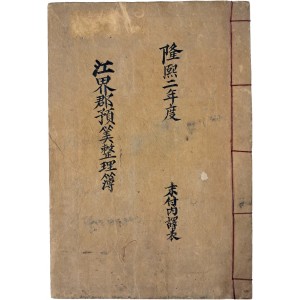 隆熙二年度
末付內譯表
江界郡預筭整理簿